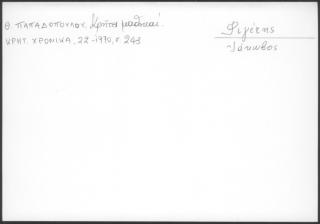 Θ. ΠΑΠΑΔΟΠΟΥΛΟΥ, Κρῆτες μαθηταί.
ΚΡΗΤ. ΧΡΟΝΙΚΑ, 22-1970, σ. 243
Φιγέτης
Ἰάκωβος